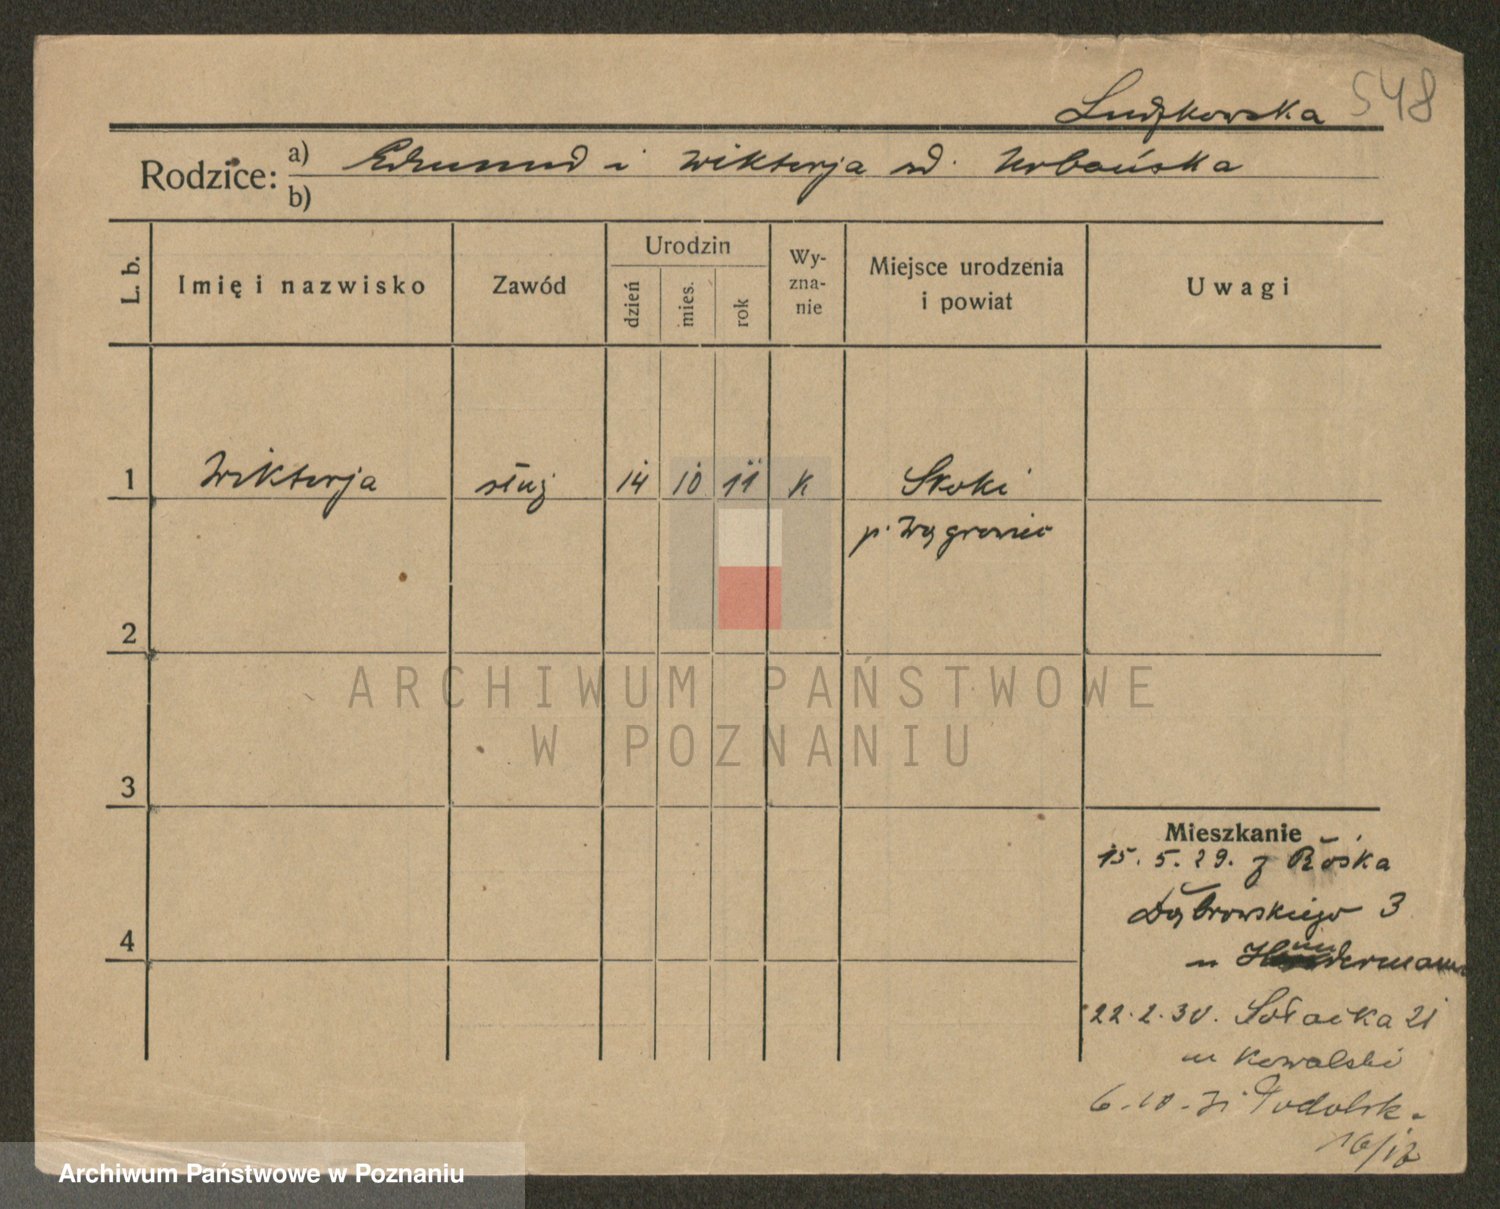 Ludzkowska 548
Rodzice: a) Edmund i Wiktorja rd. Urbańska
b)
L. b.
Imię i nazwisko
Zawód
Urodzin
dzień
mies.
rok
Wy-
zna-
nie
Miejsce urodzenia
i powiat
Uwagi
1 Wiktorja służ 14 10 11 K Skoki
p. Wągrowiec
2
3
4
ARCHIWUM PAŃSTWOWE
W POZNANIU
Mieszkanie
15. 5. 29. z
Dąbrowskiego 3
22. 2. 30. Sołacka 21
m Kowalski
6.10. Podolsk.
16/17
Archiwum Państwowe w Poznaniu